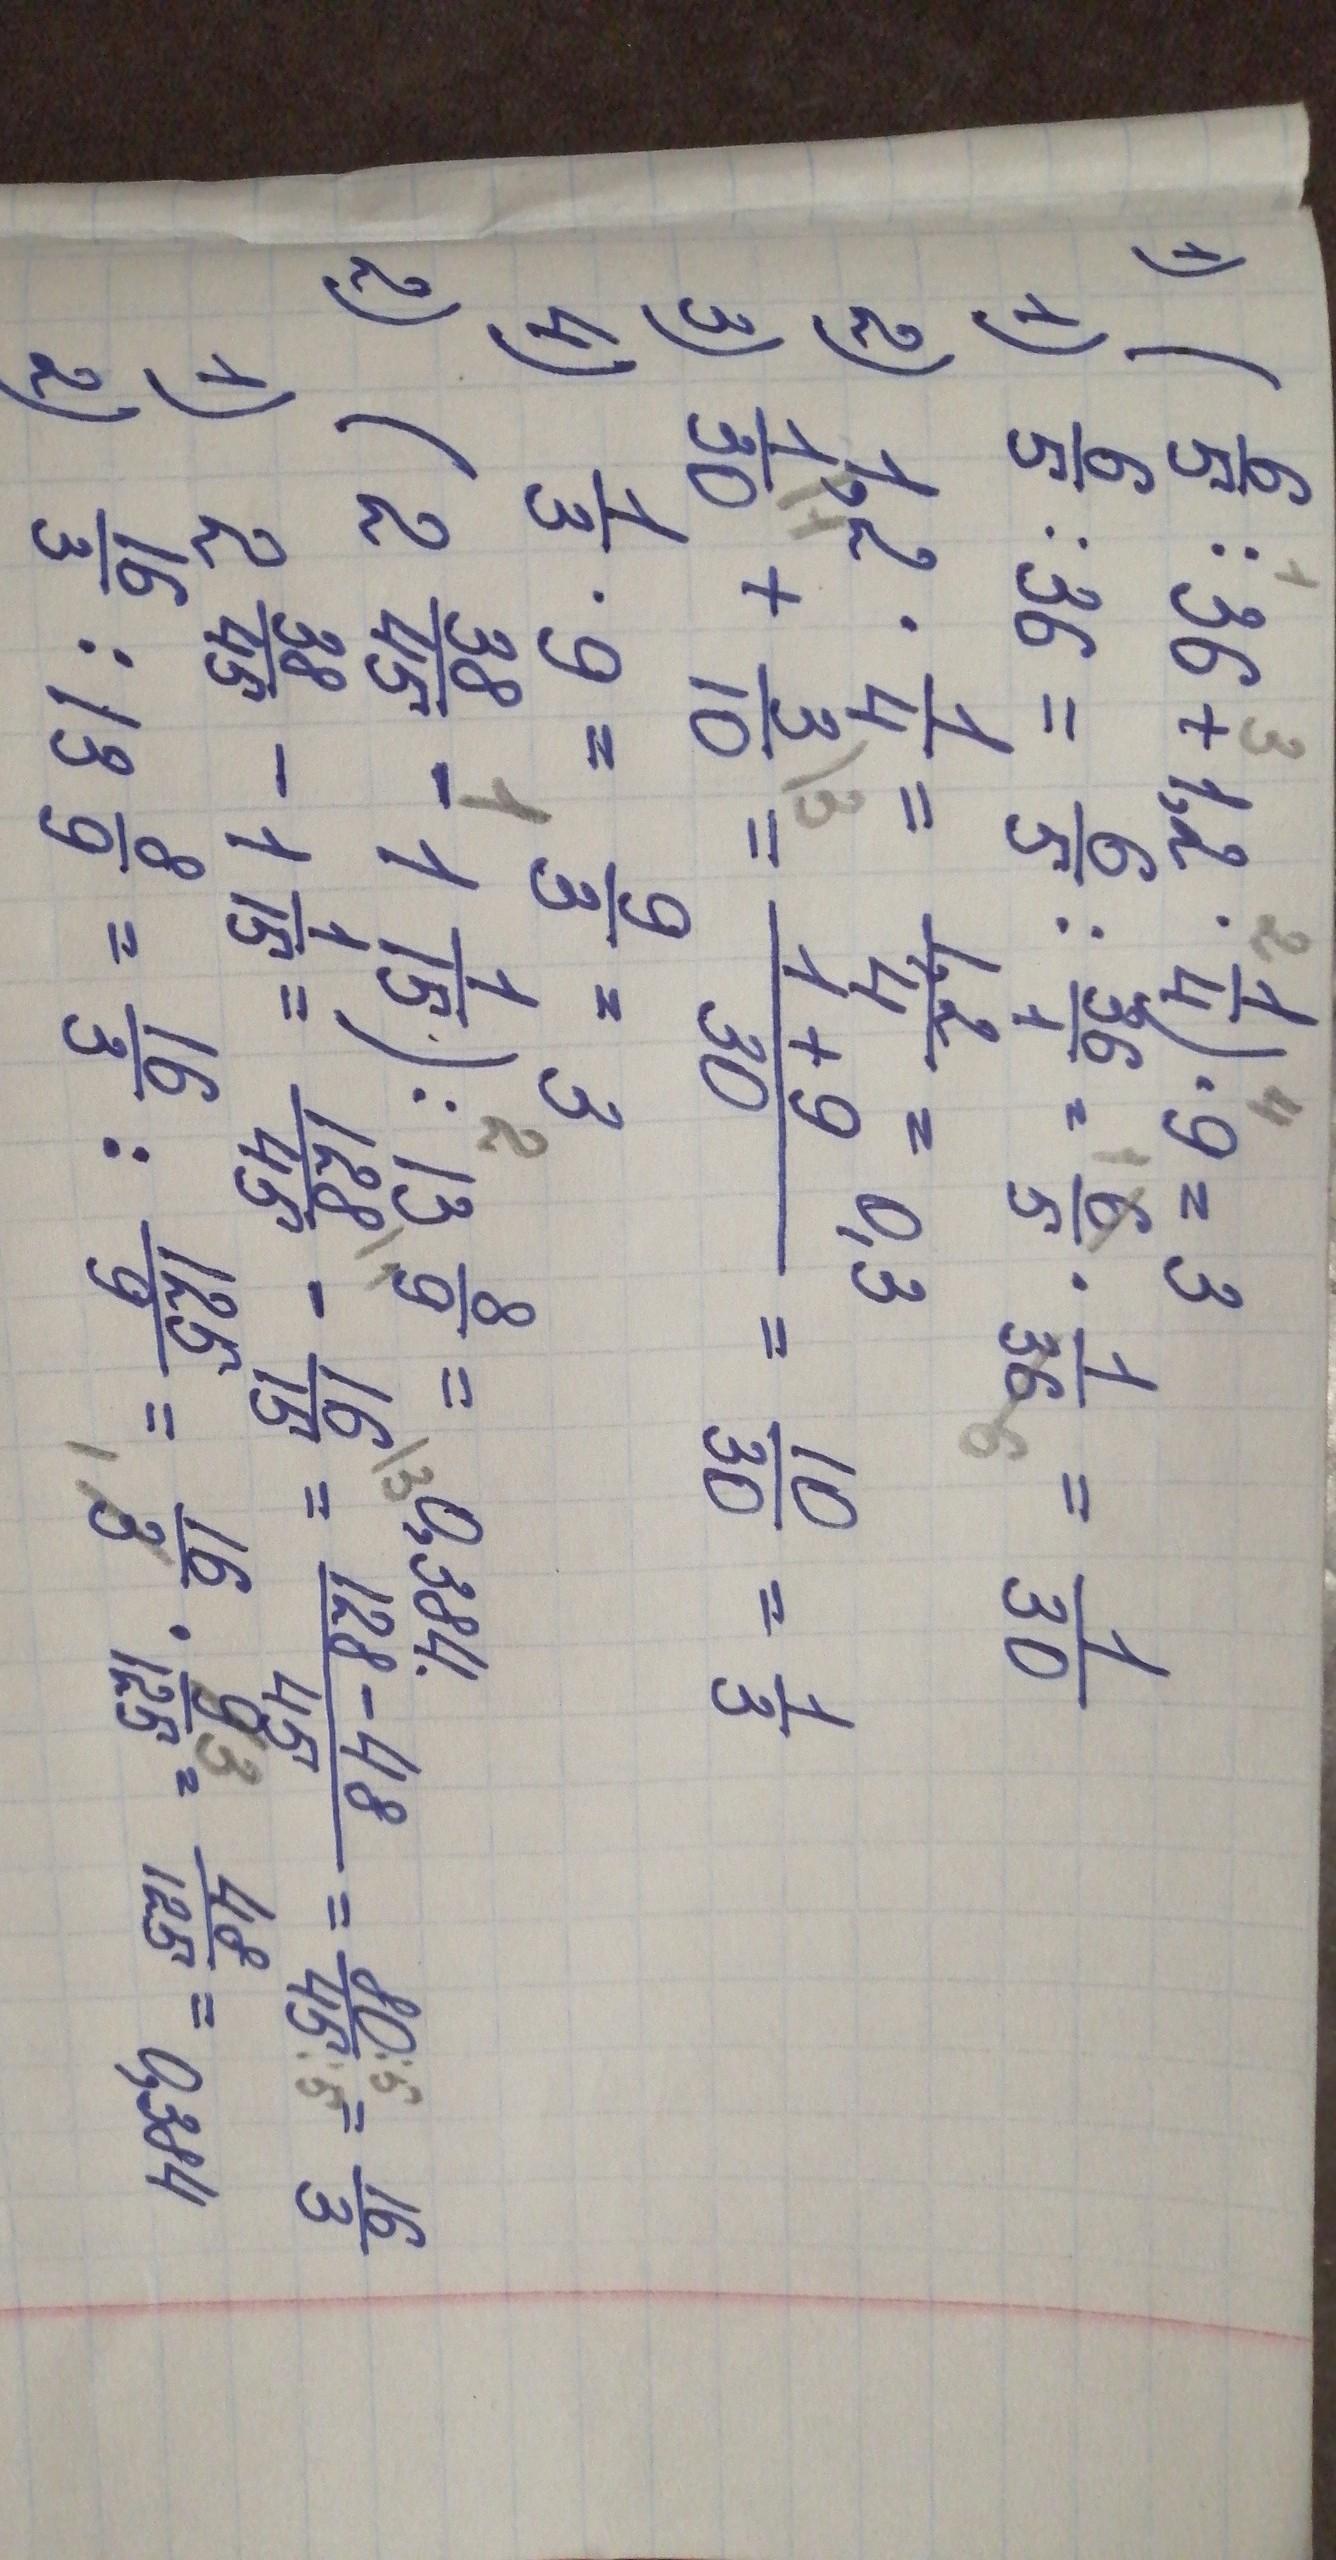 1) (6/5 : 36 + 1,2 · 1/4) · 9 = 3
1) 6/5 : 36 = 6/5 : 36/1 = 6/5 · 1/36 = 1/30
2) 1,2 · 1/4 = 1,2/4 = 0,3
3) 1/30 + 3/10 = (1+9)/30 = 10/30 = 1/3
4) 1/3 · 9 = 9/3 = 3
2) (2 38/45 - 1 1/15) : 13 8/9 = 0,384.
1) 2 38/45 - 1 1/15 = 128/45 - 16/15 = (128-48)/45 = 80:5/45:5 = 16/3
2) 16/3 : 13 8/9 = 16/3 : 125/9 = 16/3 · 9/125 = 48/125 = 0,384